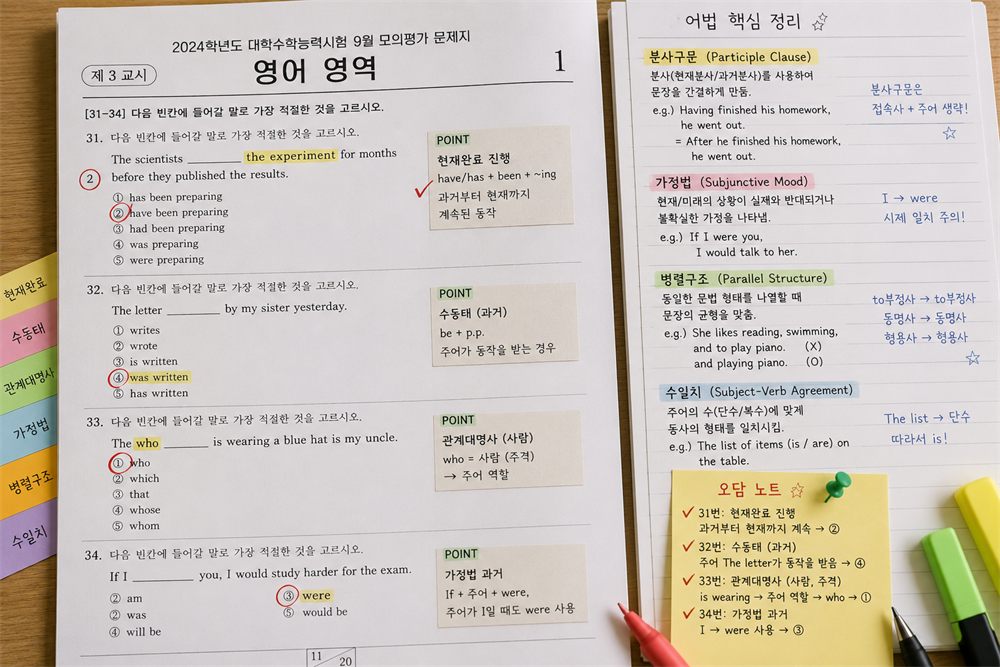 2024학년도 대학수학능력시험 9월 모의평가 문제지
제 3 교시
영어 영역
1
[31-34] 다음 빈칸에 들어갈 말로 가장 적절한 것을 고르시오.
31. 다음 빈칸에 들어갈 말로 가장 적절한 것을 고르시오.
The scientists ________ the experiment for months
before they published the results.
2
① has been preparing
② have been preparing
③ had been preparing
④ was preparing
⑤ were preparing
POINT
현재완료 진행
have/has + been + ~ing
과거부터 현재까지
계속된 동작
32. 다음 빈칸에 들어갈 말로 가장 적절한 것을 고르시오.
The letter ________ by my sister yesterday.
① writes
② wrote
③ is written
④ was written
⑤ has written
POINT
수동태 (과거)
be + p.p.
주어가 동작을 받는 경우
33. 다음 빈칸에 들어갈 말로 가장 적절한 것을 고르시오.
The who ________ is wearing a blue hat is my uncle.
① who
② which
③ that
④ whose
⑤ whom
POINT
관계대명사 (사람)
who = 사람 (주격)
→ 주어 역할
34. 다음 빈칸에 들어갈 말로 가장 적절한 것을 고르시오.
If I ________ you, I would study harder for the exam.
② am
③ were
② was
⑤ would be
④ will be
POINT
가정법 과거
If + 주어 + were,
주어가 I일 때도 were 사용
11
20
현재완료
수동태
관계대명사
가정법
병렬구조
수일치
어법 핵심 정리
분사구문 (Participle Clause)
분사(현재분사/과거분사)를 사용하여
문장을 간결하게 만듬.
e.g.) Having finished his homework,
he went out.
= After he finished his homework,
he went out.
분사구문은
접속사 + 주어 생략!
가정법 (Subjunctive Mood)
현재/미래의 상황이 실제와 반대되거나
불확실한 가정을 나타냄.
e.g.) If I were you,
I would talk to her.
I → were
시제 일치 주의!
병렬구조 (Parallel Structure)
동일한 문법 형태를 나열할 때
문장의 균형을 맞춤.
e.g.) She likes reading, swimming,
and to play piano. (X)
and playing piano. (O)
to부정사 → to부정사
동명사 → 동명사
형용사 → 형용사
수일치 (Subject-Verb Agreement)
주어의 수(단수/복수)에 맞게
동사의 형태를 일치시킴.
e.g.) The list of items (is / are) on
the table.
The list → 단수
따라서 is!
오답 노트
31번: 현재완료 진행
과거부터 현재까지 계속 → ②
32번: 수동태 (과거)
주어 The letter가 동작을 받음 → ④
33번: 관계대명사 (사람, 주격)
is wearing → 주어 역할 → who → ①
34번: 가정법 과거
I → were 사용 → ③